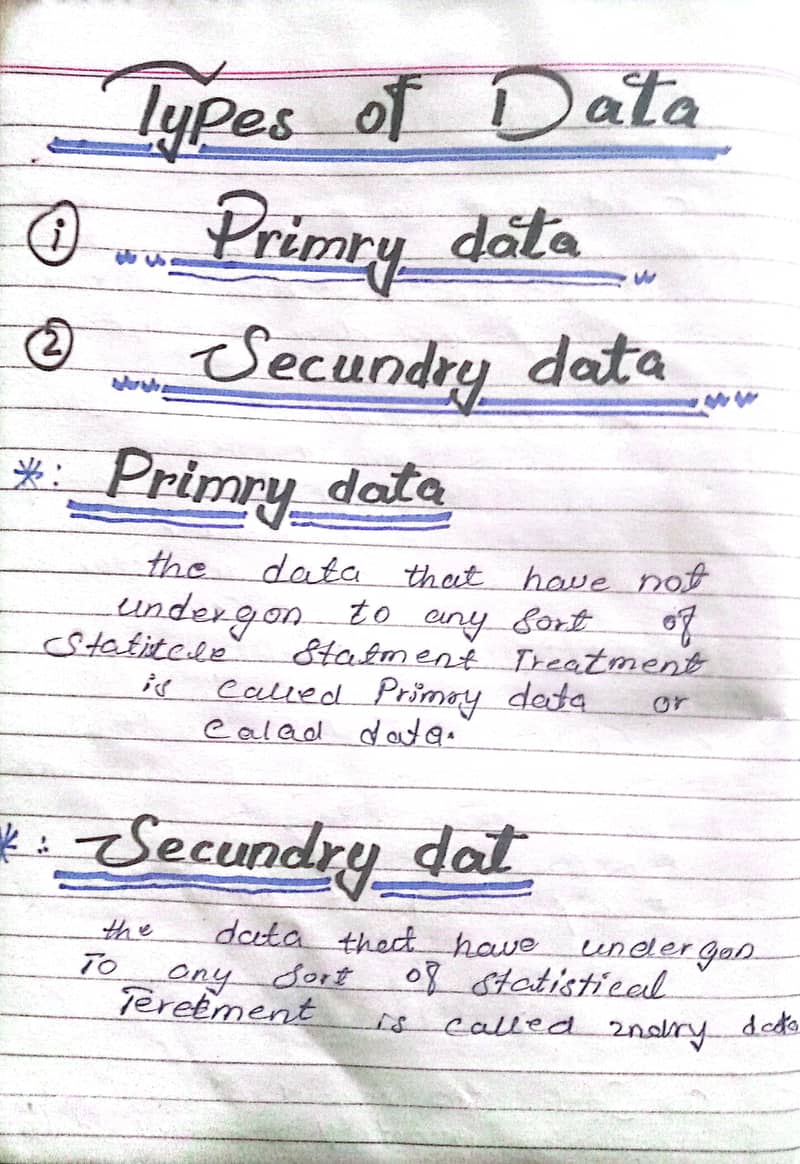 Types of Data
① Primry data
② Secundry data
*: Primry data
the data that have not
undergon to any sort of
Statitcle Statment Treatment
is called Primry data or
Calad data.
*: Secundry dat
the data thet have undergon
To any sort of statistical
Tereetment is called 2ndry data